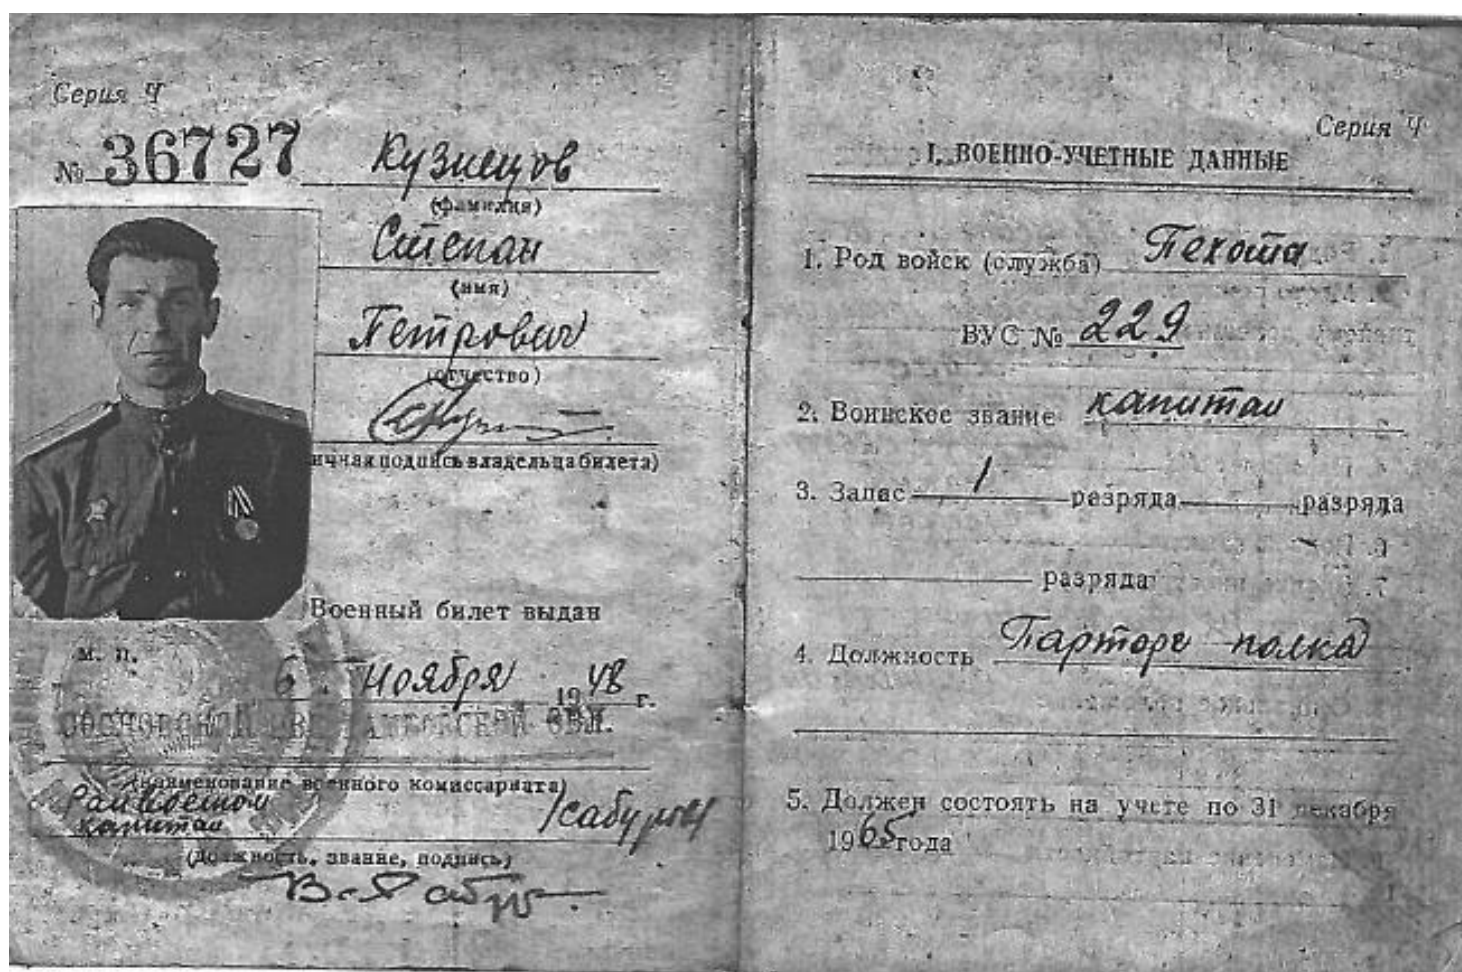 Серия Ч
№ 36727
Кузнецов
(фамилия)
Степан
(имя)
Петрович
(отчество)
ичная подпись владельца билета)
Военный билет выдан
М. П.
6. Ноября 1948 г.
СОСНОВСКОЙ ТАМБОВСКОЙ ОБЛ.
(наименование военного комиссариата)
Райвоенком
капитан /сабуров/
(должность, звание, подпись)
Серия Ч
I. ВОЕННО-УЧЕТНЫЕ ДАННЫЕ
1. Род войск (служба) Пехота
ВУС № 229
2. Воинское звание капитан
3. Запас 1 разряда разряда
разряда
4. Должность Парторг полка
5. Должен состоять на учете по 31 декабря
1965 года